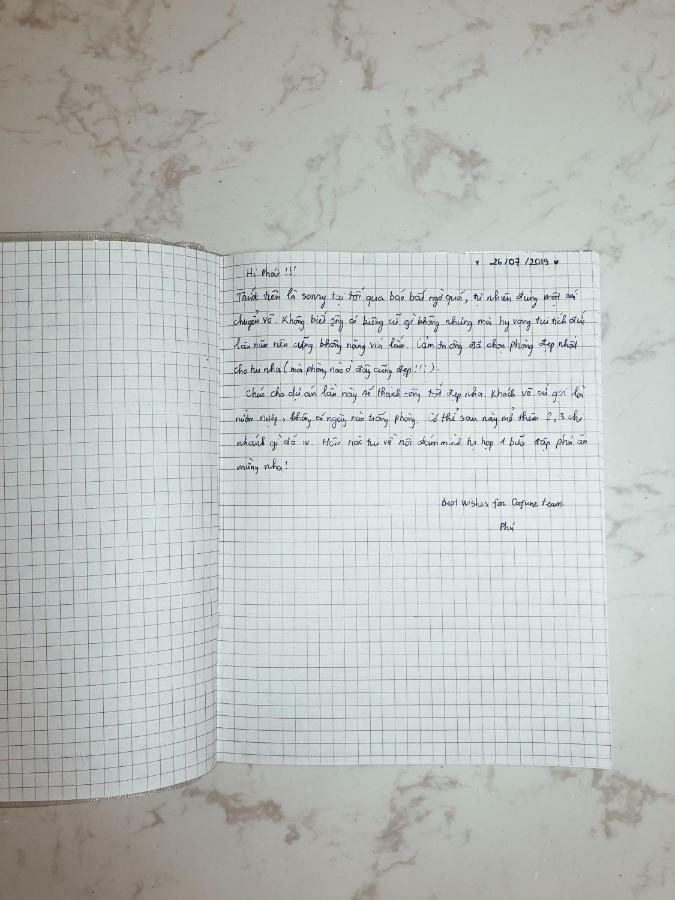 ♥ 26/07/2019 ♥
Hi Phát !!!
Trước tiên là sorry tại tối qua báo bất ngờ quá, tự nhiên đụng một cái
chuyện vô. Không biết ông có kiêng cử gì không nhưng mà hy vọng tui tích đức
lâu năm nên cũng không nặng vía lắm. Cảm ơn ông đã chọn phòng đẹp nhất
cho tui nha (mà phòng nào ở đây cũng đẹp !!! ).
Chúc cho dự án lần này sẽ thành công tốt đẹp nha. Khách vô cứ gọi là
nườm nượp, không có ngày nào trống phòng. Có thể sau này mở thêm 2, 3 chi
nhánh gì đó :v. Hôm nào tui về nội đám mình tụ họp 1 bữa đập phá ăn
mừng nha!
Best wishes for Cafune team.
Phú